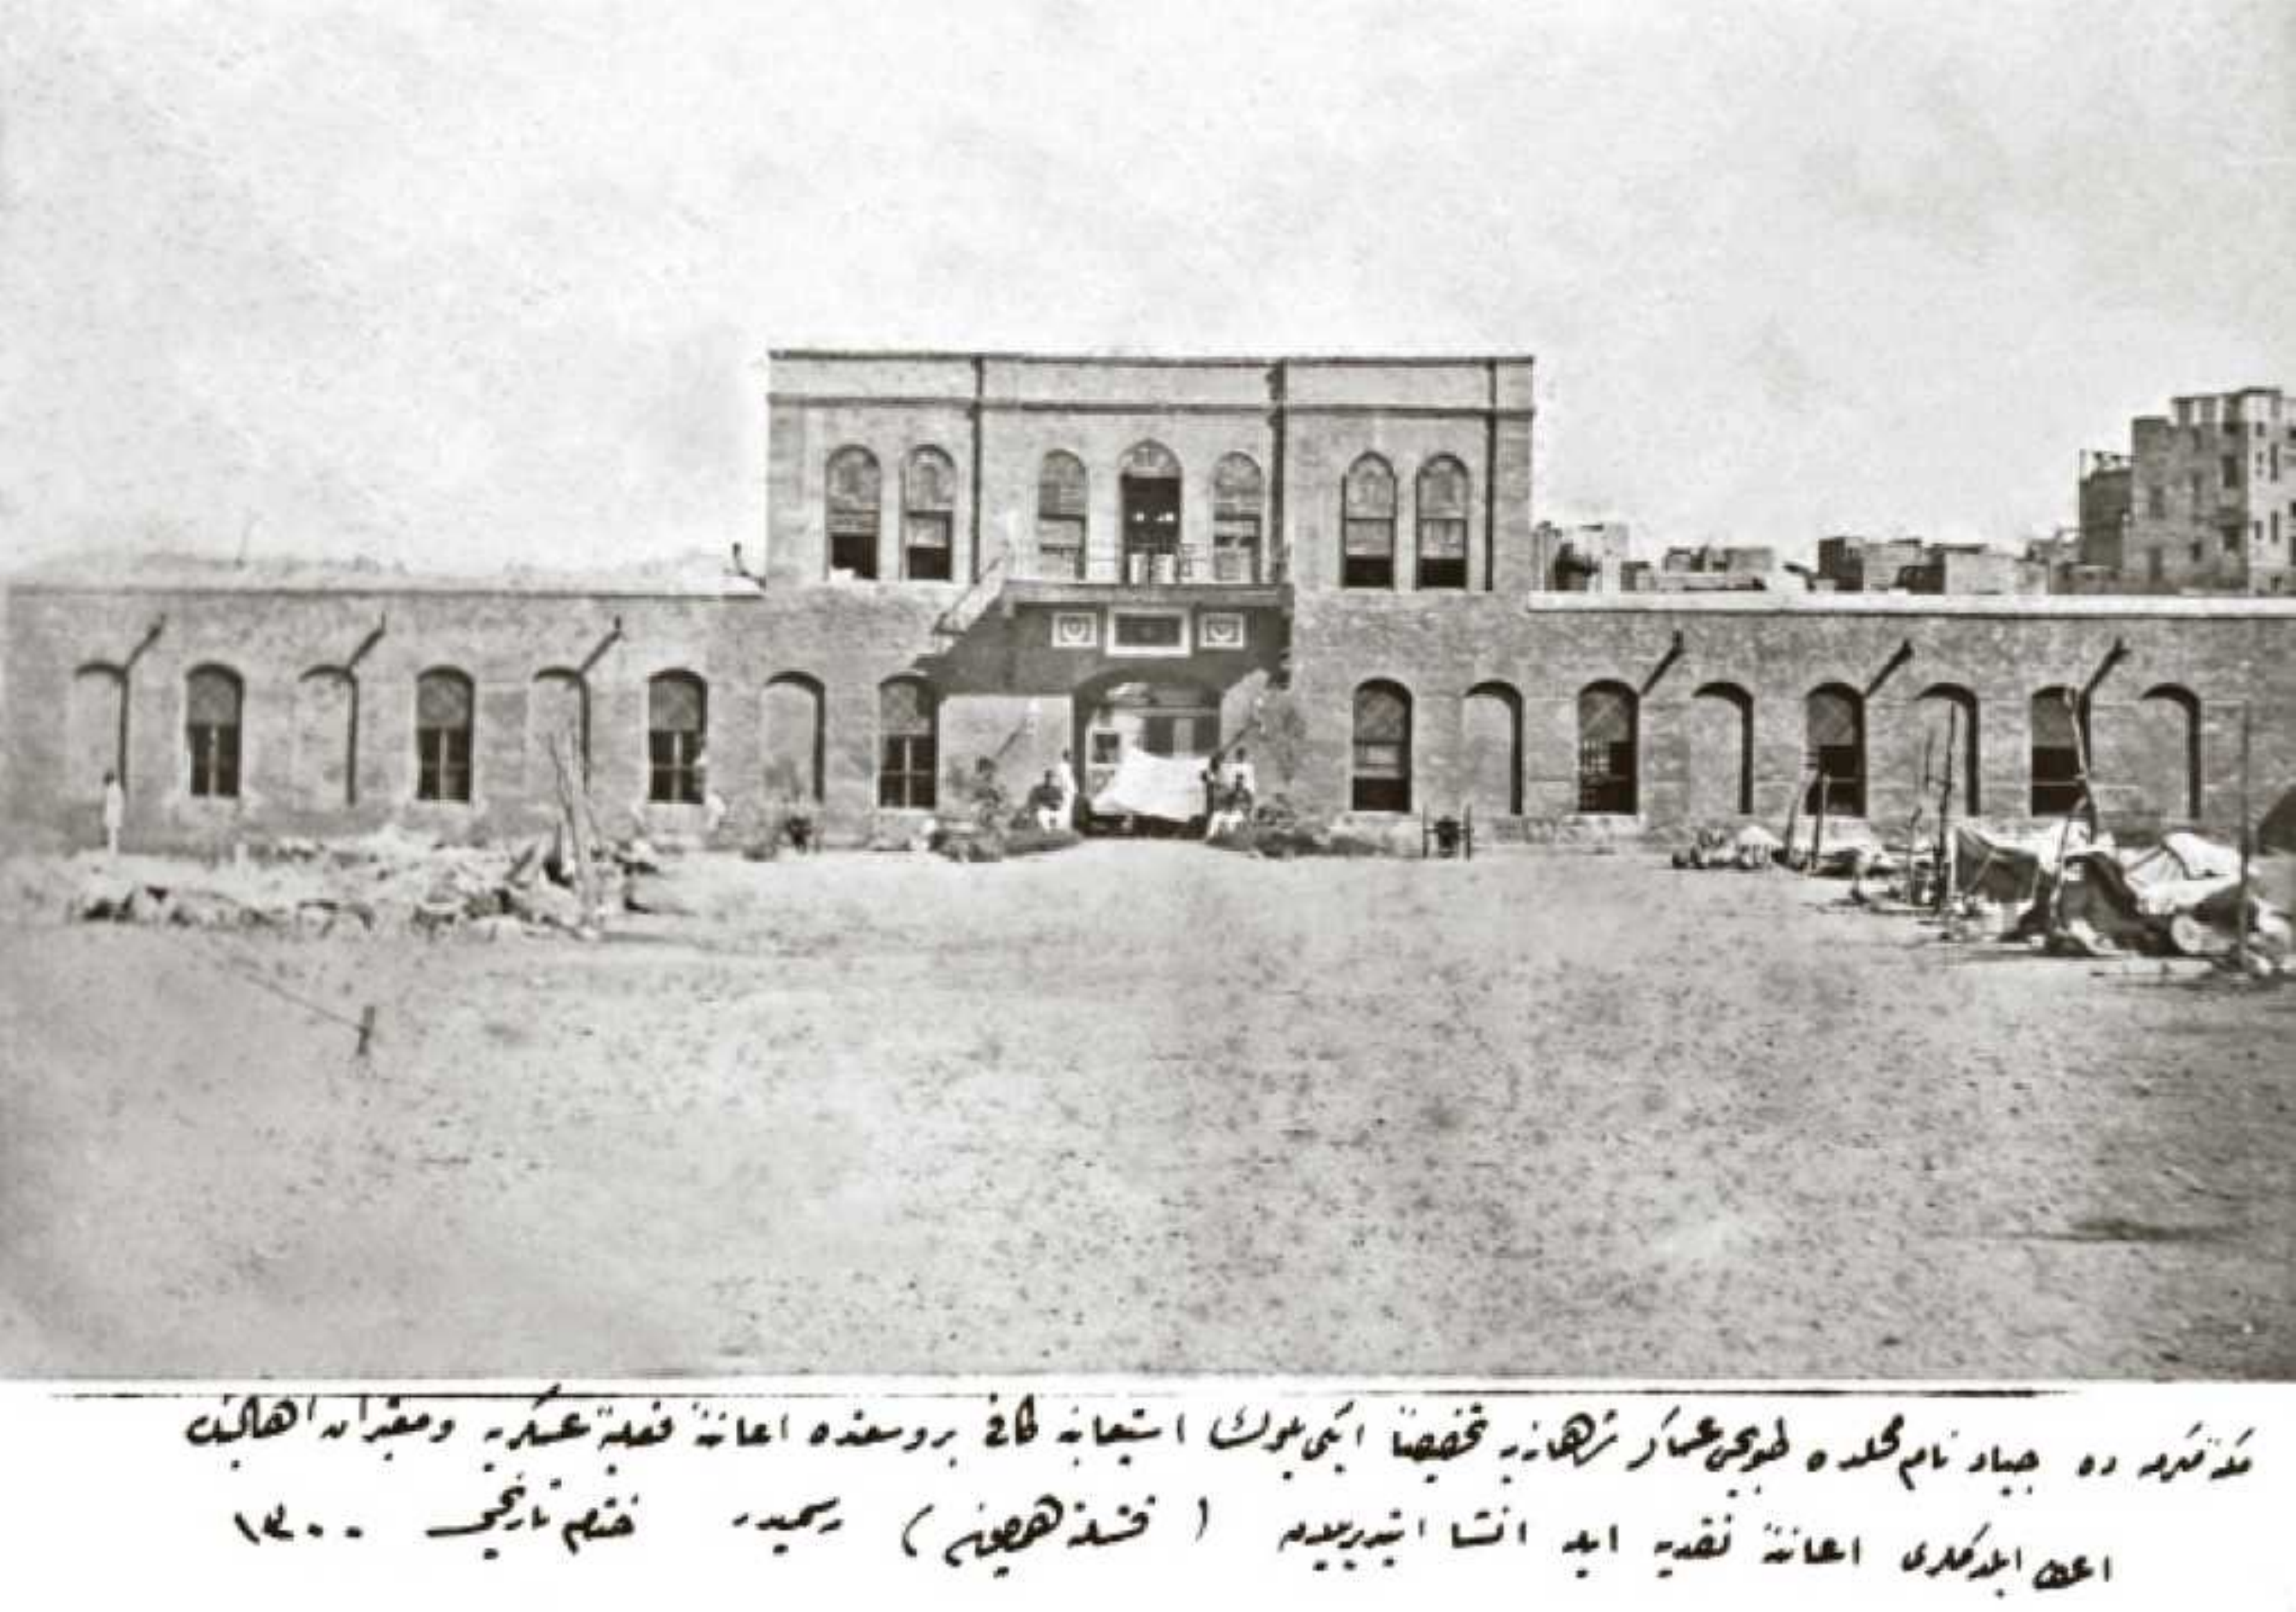 مكۀ مكرمه ده جياد نام محلده طوپجی عساكر شاهانه‌يه تخصيصاً ايكی بلوك استيعابنه كافی بر وسعتده اعانۀ فعليۀ عسكريه و معتبران اهالينك
اعطا ايلدكلری اعانۀ نقديه ايله انشا ايتديريلان ( قشلۀ همايون ) رسميدر ختام تاريخی ١٣٠٠